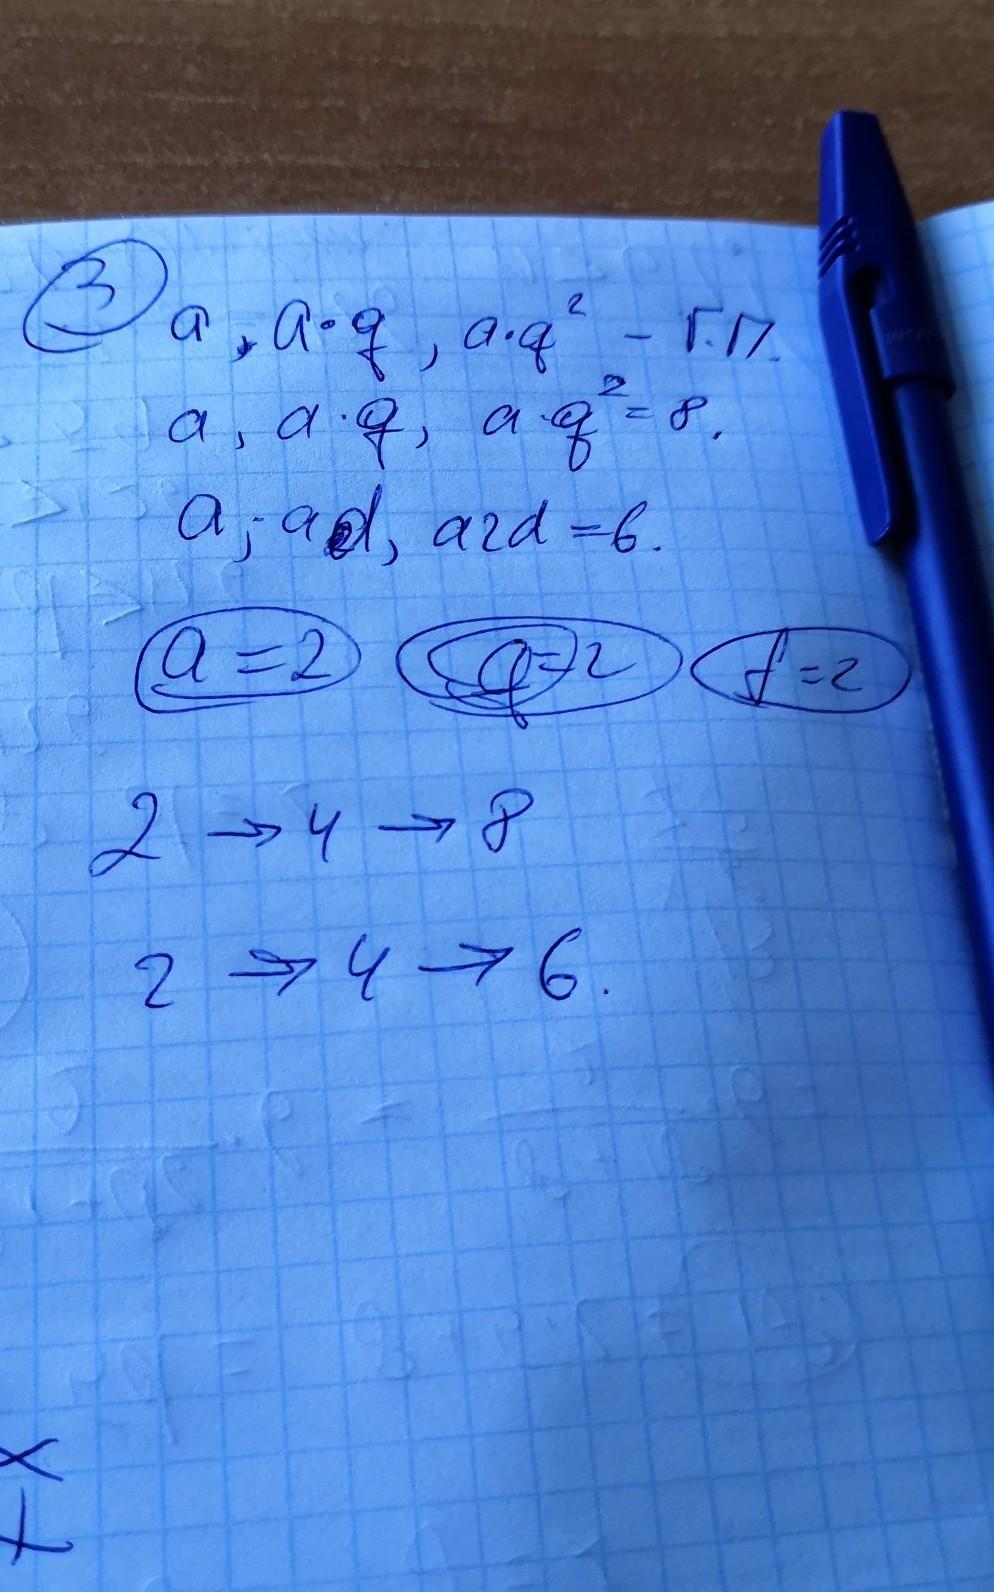 3 a, a·q, a·q² - Г.П.
a, a·q, a·q² = 8.
a, ad, a2d = 6.
a = 2 q = 2 d = 2
2 → 4 → 8
2 → 4 → 6.
x
+